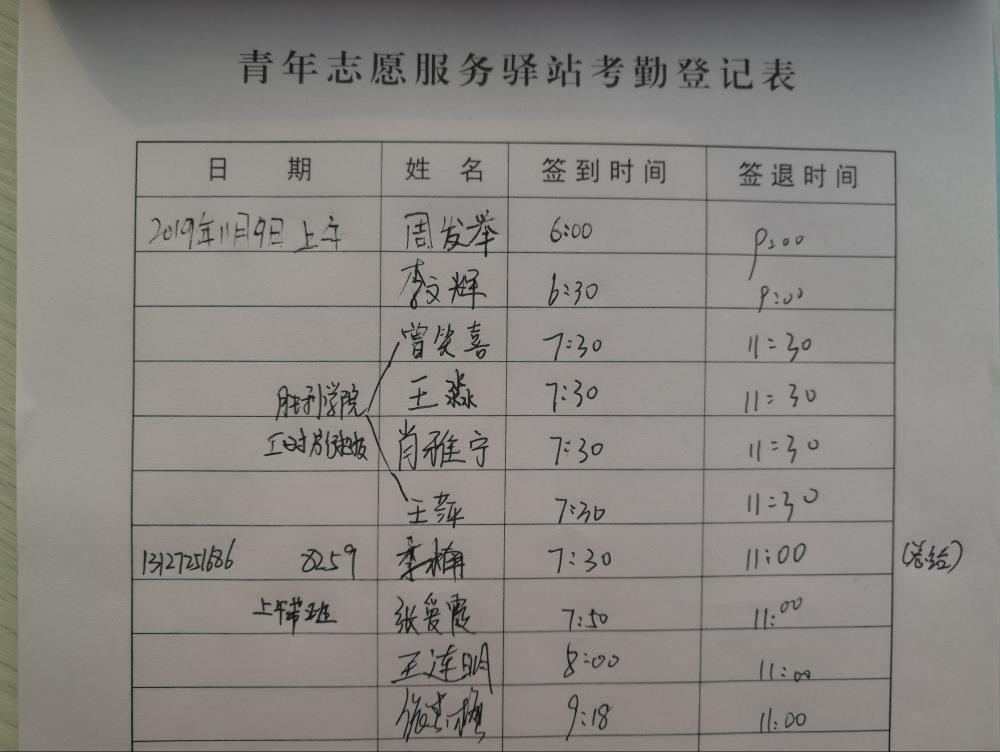 青年志愿服务驿站考勤登记表
日 期 姓 名 签到时间 签退时间
2019年11月9日 上午 周发举 6:00 9:00
李文辉 6:30 9:00
曾笑喜 7:30 11:30
胜利学院 王淼 7:30 11:30
肖雅宁 7:30 11:30
王萍 7:30 11:30
13127251686 8259 李楠 7:30 11:00
上午带班 张爱霞 7:50 11:00
王连明 8:00 11:00
9:18 11:00